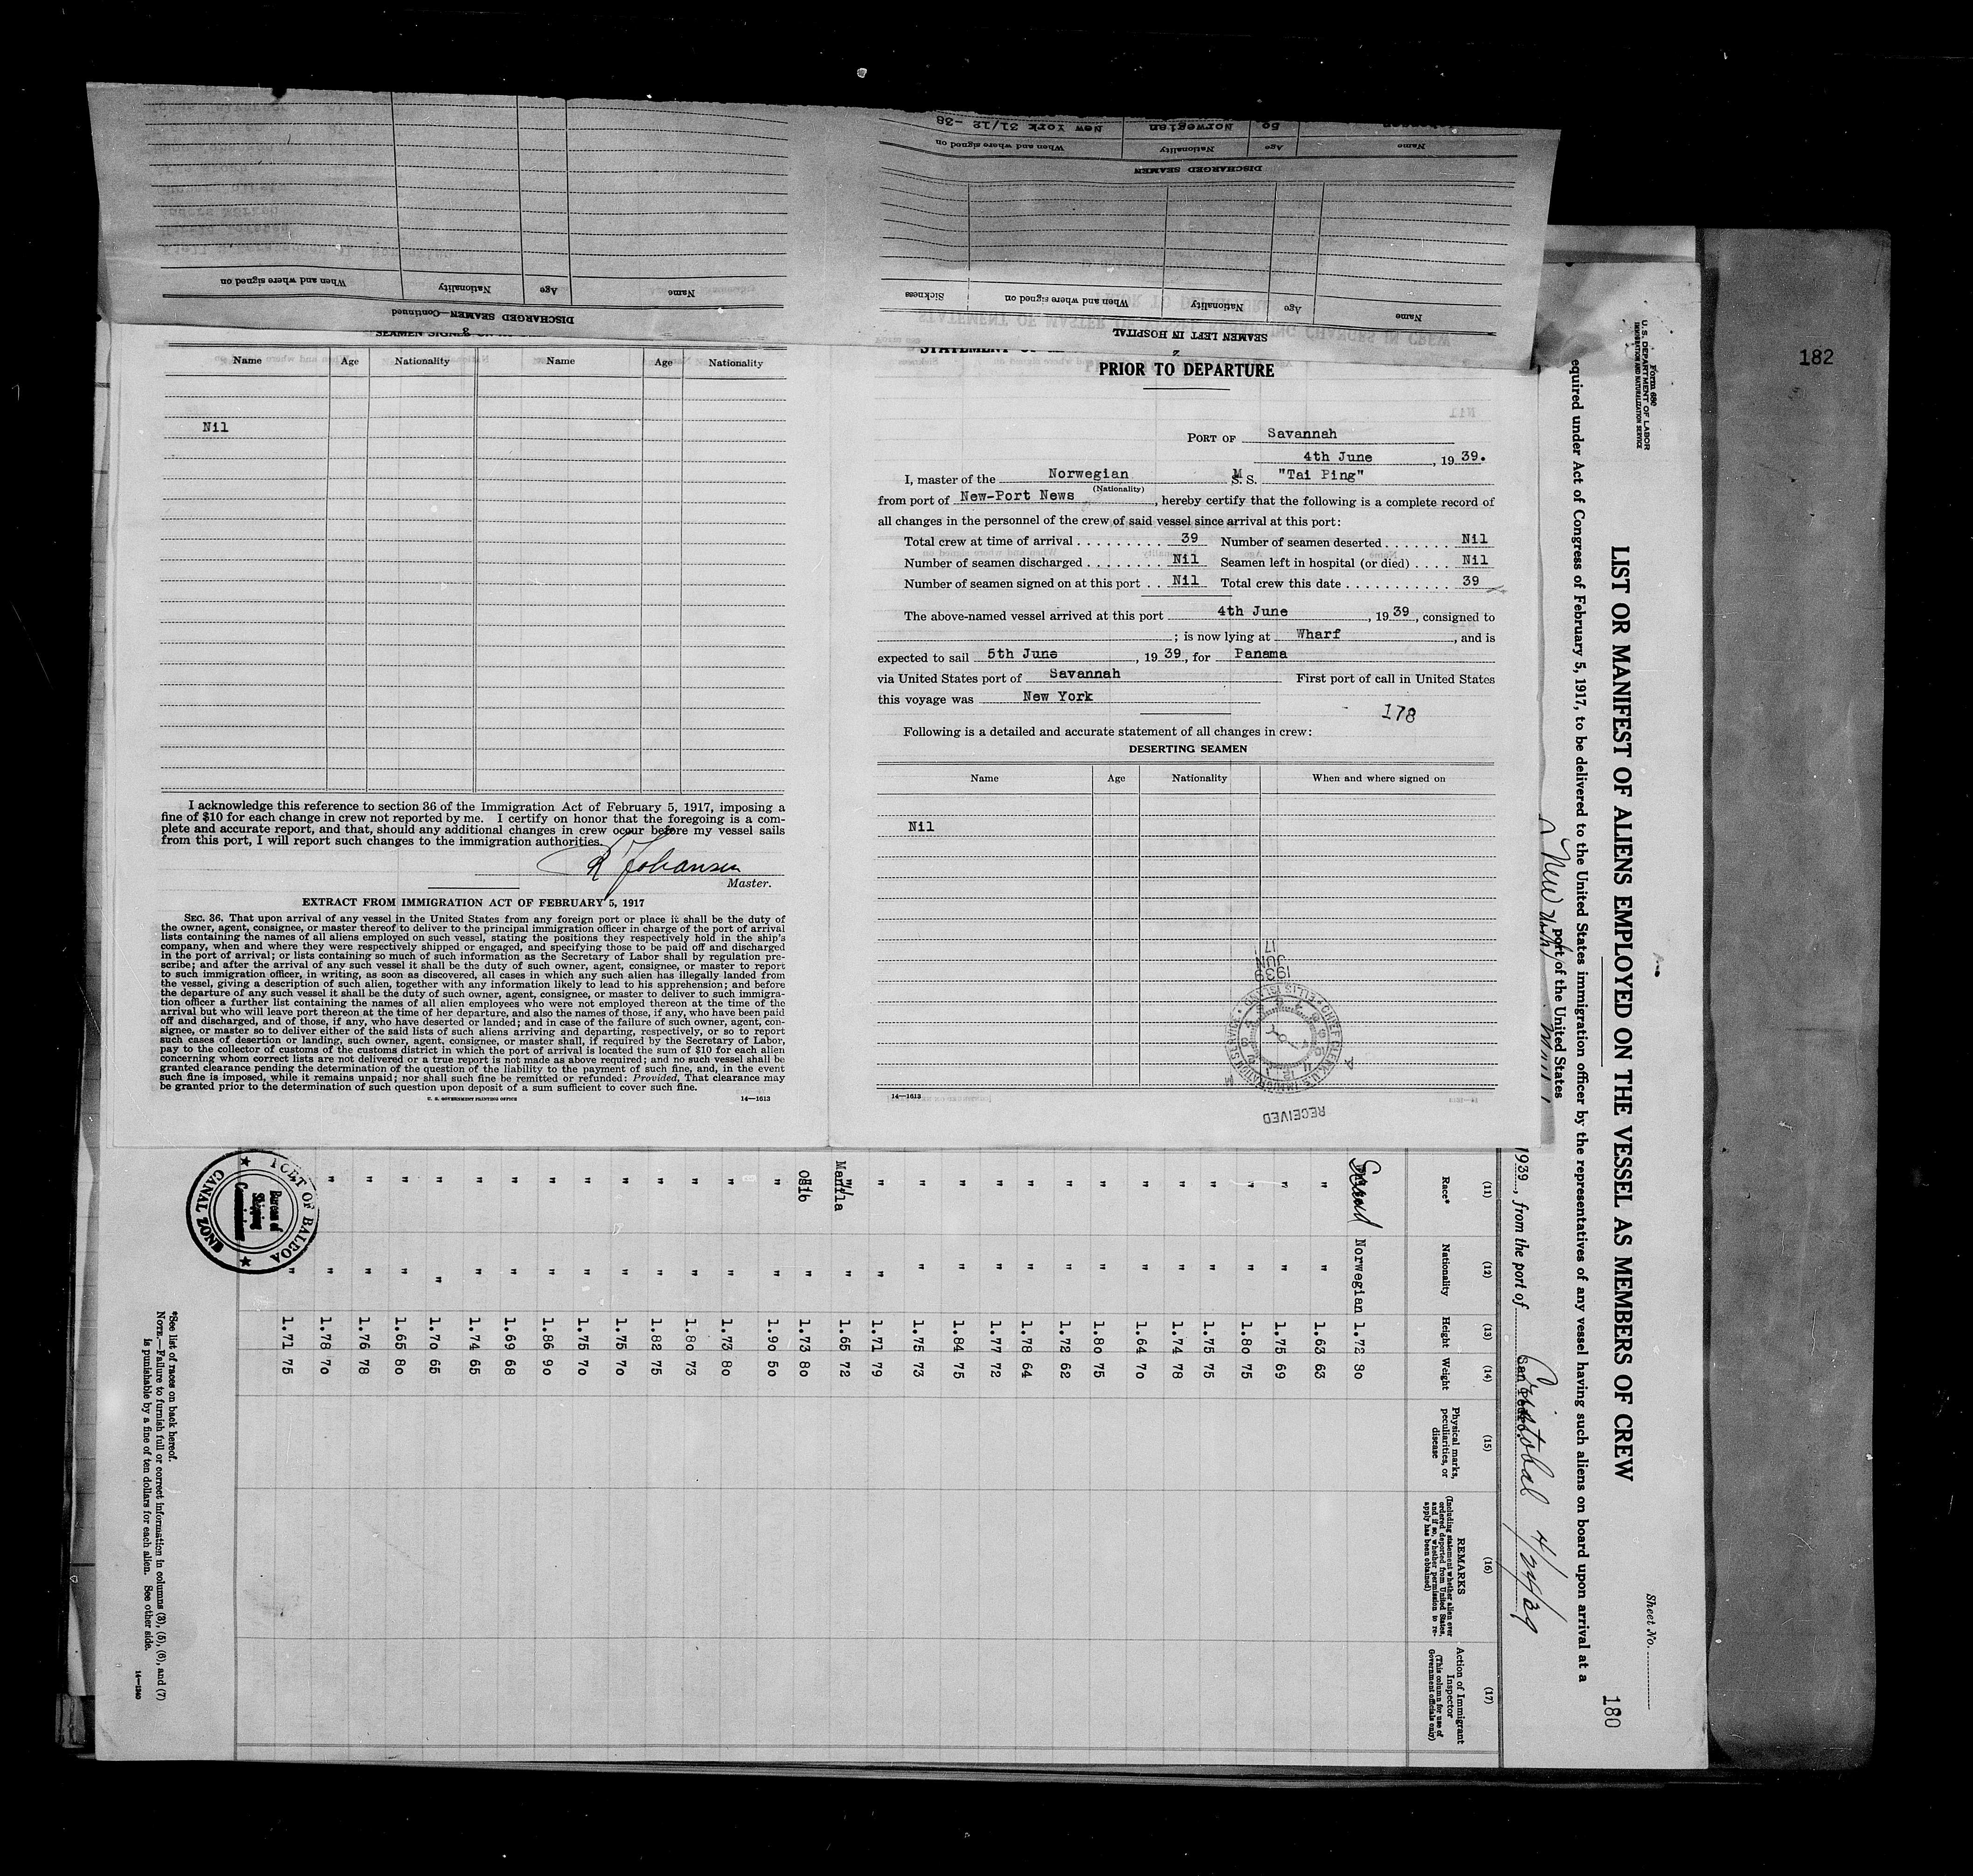 182
New York 31/12 -38
Norwegian
50
When and where signed on
Nationality
Age
Name
DISCHARGED SEAMEN
Name
Age
Nationality
When and where signed on
Sickness
SEAMEN LEFT IN HOSPITAL
2
When and where signed on
Nationality
Age
Name
DISCHARGED SEAMEN—Continued
3
Name Age Nationality Name Age Nationality
Nil
I acknowledge this reference to section 36 of the Immigration Act of February 5, 1917, imposing a
fine of $10 for each change in crew not reported by me. I certify on honor that the foregoing is a com-
plete and accurate report, and that, should any additional changes in crew occur before my vessel sails
from this port, I will report such changes to the immigration authorities.
R Johansen
Master.
EXTRACT FROM IMMIGRATION ACT OF FEBRUARY 5, 1917
SEC. 36. That upon arrival of any vessel in the United States from any foreign port or place it shall be the duty of
the owner, agent, consignee, or master thereof to deliver to the principal immigration officer in charge of the port of arrival
lists containing the names of all aliens employed on such vessel, stating the positions they respectively hold in the ship's
company, when and where they were respectively shipped or engaged, and specifying those to be paid off and discharged
in the port of arrival; or lists containing so much of such information as the Secretary of Labor shall by regulation pre-
scribe; and after the arrival of any such vessel it shall be the duty of such owner, agent, consignee, or master to report
to such immigration officer, in writing, as soon as discovered, all cases in which any such alien has illegally landed from
the vessel, giving a description of such alien, together with any information likely to lead to his apprehension; and before
the departure of any such vessel it shall be the duty of such owner, agent, consignee, or master to deliver to such immigra-
tion officer a further list containing the names of all alien employees who were not employed thereon at the time of the
arrival but who will leave port thereon at the time of her departure, and also the names of those, if any, who have been paid
off and discharged, and of those, if any, who have deserted or landed; and in case of the failure of such owner, agent, con-
signee, or master so to deliver either of the said lists of such aliens arriving and departing, respectively, or so to report
such cases of desertion or landing, such owner, agent, consignee, or master shall, if required by the Secretary of Labor,
pay to the collector of customs of the customs district in which the port of arrival is located the sum of $10 for each alien
concerning whom correct lists are not delivered or a true report is not made as above required; and no such vessel shall be
granted clearance pending the determination of the question of the liability to the payment of such fine, and, in the event
such fine is imposed, while it remains unpaid; nor shall such fine be remitted or refunded: Provided, That clearance may
be granted prior to the determination of such question upon deposit of a sum sufficient to cover such fine.
U. S. GOVERNMENT PRINTING OFFICE 14—1613
PRIOR TO DEPARTURE
PORT OF Savannah
4th June, 1939.
I, master of the Norwegian M S. S. "Tai Ping"
(Nationality)
from port of New-Port News, hereby certify that the following is a complete record of
all changes in the personnel of the crew of said vessel since arrival at this port:
Total crew at time of arrival 39 Number of seamen deserted Nil
Number of seamen discharged Nil Seamen left in hospital (or died) Nil
Number of seamen signed on at this port Nil Total crew this date 39
The above-named vessel arrived at this port 4th June, 1939, consigned to
; is now lying at Wharf, and is
expected to sail 5th June, 1939, for Panama
via United States port of Savannah First port of call in United States
this voyage was New York
178
Following is a detailed and accurate statement of all changes in crew:
DESERTING SEAMEN
Name Age Nationality When and where signed on
Nil
14—1613
RECEIVED
CHIEF CLERK U.S. IMMIGRATION SERVICE • ELLIS ISLAND
1939 JUN 17
Form 680
U. S. DEPARTMENT OF LABOR
IMMIGRATION AND NATURALIZATION SERVICE
Sheet No.
180
LIST OR MANIFEST OF ALIENS EMPLOYED ON THE VESSEL AS MEMBERS OF CREW
equired under Act of Congress of February 5, 1917, to be delivered to the United States immigration officer by the representatives of any vessel having such aliens on board upon arrival at a
port of the United States
New York
1939, from the port of Cristobal 4/24/39
(11) (12) (13) (14) (15) (16) (17)
Race* Nationality Height Weight
Physical marks, peculiarities, or disease
REMARKS
(Including statement whether alien ever ordered deported from United States, and if so, whether permission to re-apply has been obtained)
Action of Immigrant Inspector
(This column for use of Government officials only)
Scand Norwegian 1.72 80
" " 1.63 63
" " 1.75 69
" " 1.80 75
" " 1.75 75
" " 1.74 78
" " 1.64 70
" " 1.80 75
" " 1.72 62
" " 1.78 64
" " 1.77 72
" " 1.84 75
" " 1.75 73
" " 1.71 79
Manila " 1.65 72
" 1.73 80
" " 1.90 50
" " 1.73 80
" " 1.80 73
" " 1.82 75
" " 1.75 70
" " 1.75 70
" " 1.86 90
" " 1.69 68
" " 1.74 65
" " 1.70 65
" " 1.65 80
" " 1.76 78
" " 1.78 70
" 1.71 75
PORT OF BALBOA
Bureau of
Shipping
Commissioner
CANAL ZONE
*See list of races on back hereof.
NOTE.—Failure to furnish full or correct information in columns (3), (5), (6), and (7)
is punishable by a fine of ten dollars for each alien. See other side.
14—1240